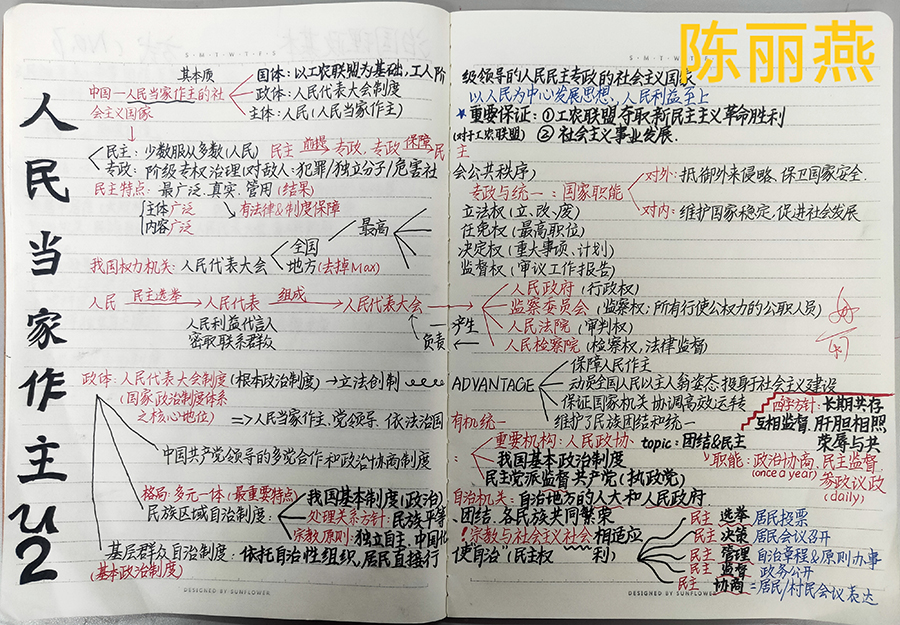 陈丽燕
人民当家作主U2
S·M·T·W·T·F·S
S·M·T·W·T·F·S
其本质
中国—人民当家作主的社
会主义国家
国体:以工农联盟为基础,工人阶
级领导的人民民主专政的社会主义国家
政体:人民代表大会制度
主体:人民(人民当家作主)
以人民为中心发展思想,人民利益至上
★重要保证:①工农联盟夺取新民主主义革命胜利
(对于工农联盟) ②社会主义事业发展.
民主:少数服从多数(人民) 民主 前提 专政,专政 保障 民
主
专政:阶级专权治理(对敌人:犯罪/独立分子/危害社
会公共秩序)
民主特点:最广泛.真实.管用(结果)
主体广泛
内容广泛
有法律&制度保障
专政与统一:国家职能
对外:抵御外来侵略、保卫国家安全.
对内:维护国家稳定,促进社会发展
我国权力机关:人民代表大会
全国
地方(去掉Max)
最高
立法权(立、改、废)
任免权(最高职位)
决定权(重大事项、计划)
监督权(审议工作报告)
人民 民主选举 人民代表 组成 人民代表大会
人民利益代言人
密取联系群众
负责
产生
人民政府(行政权)
监察委员会(监察权:所有行使公权力的公职人员)
人民法院(审判权)
人民检察院(检察权,法律监督)
政体:人民代表大会制度(根本政治制度)→立法创制
(国家政治制度体系
之核心地位)
=>人民当家作主、党领导、依法治国
有机统一
ADVANTAGE
保障人民作主
动员全国人民以主人翁姿态投身于社会主义建设
保证国家机关协调高效运转
维护了民族团结和统一
中国共产党领导的多党合作和政治协商制度
重要机构:人民政协. topic:团结&民主
我国基本政治制度
民主党派监督共产党(执政党)
四字方针:长期共存
互相监督.肝胆相照
荣辱与共
职能:政治协商,民主监督,
(once a year)
参政议政
(daily)
格局:多元一体(最重要特点)
民族区域自治制度:
我国基本制度(政治)
处理关系方针:民族平等
.团结.各民族共同繁荣
宗教原则:独立自主.中国化
自治机关:自治地方的人大和人民政府
!宗教与社会主义社会相适应
基层群众自治制度:依托自治性组织,居民直接行
使自治“民主权利)
(基本政治制度)
民主 选举 居民投票
民主 决策:居民会议召开
民主 管理 自治章程&原则办事
民主 监督 政务公开
民主 协商=居民/村民会议表达
DESIGNED BY SUNFLOWER
DESIGNED BY SUNFLOWER